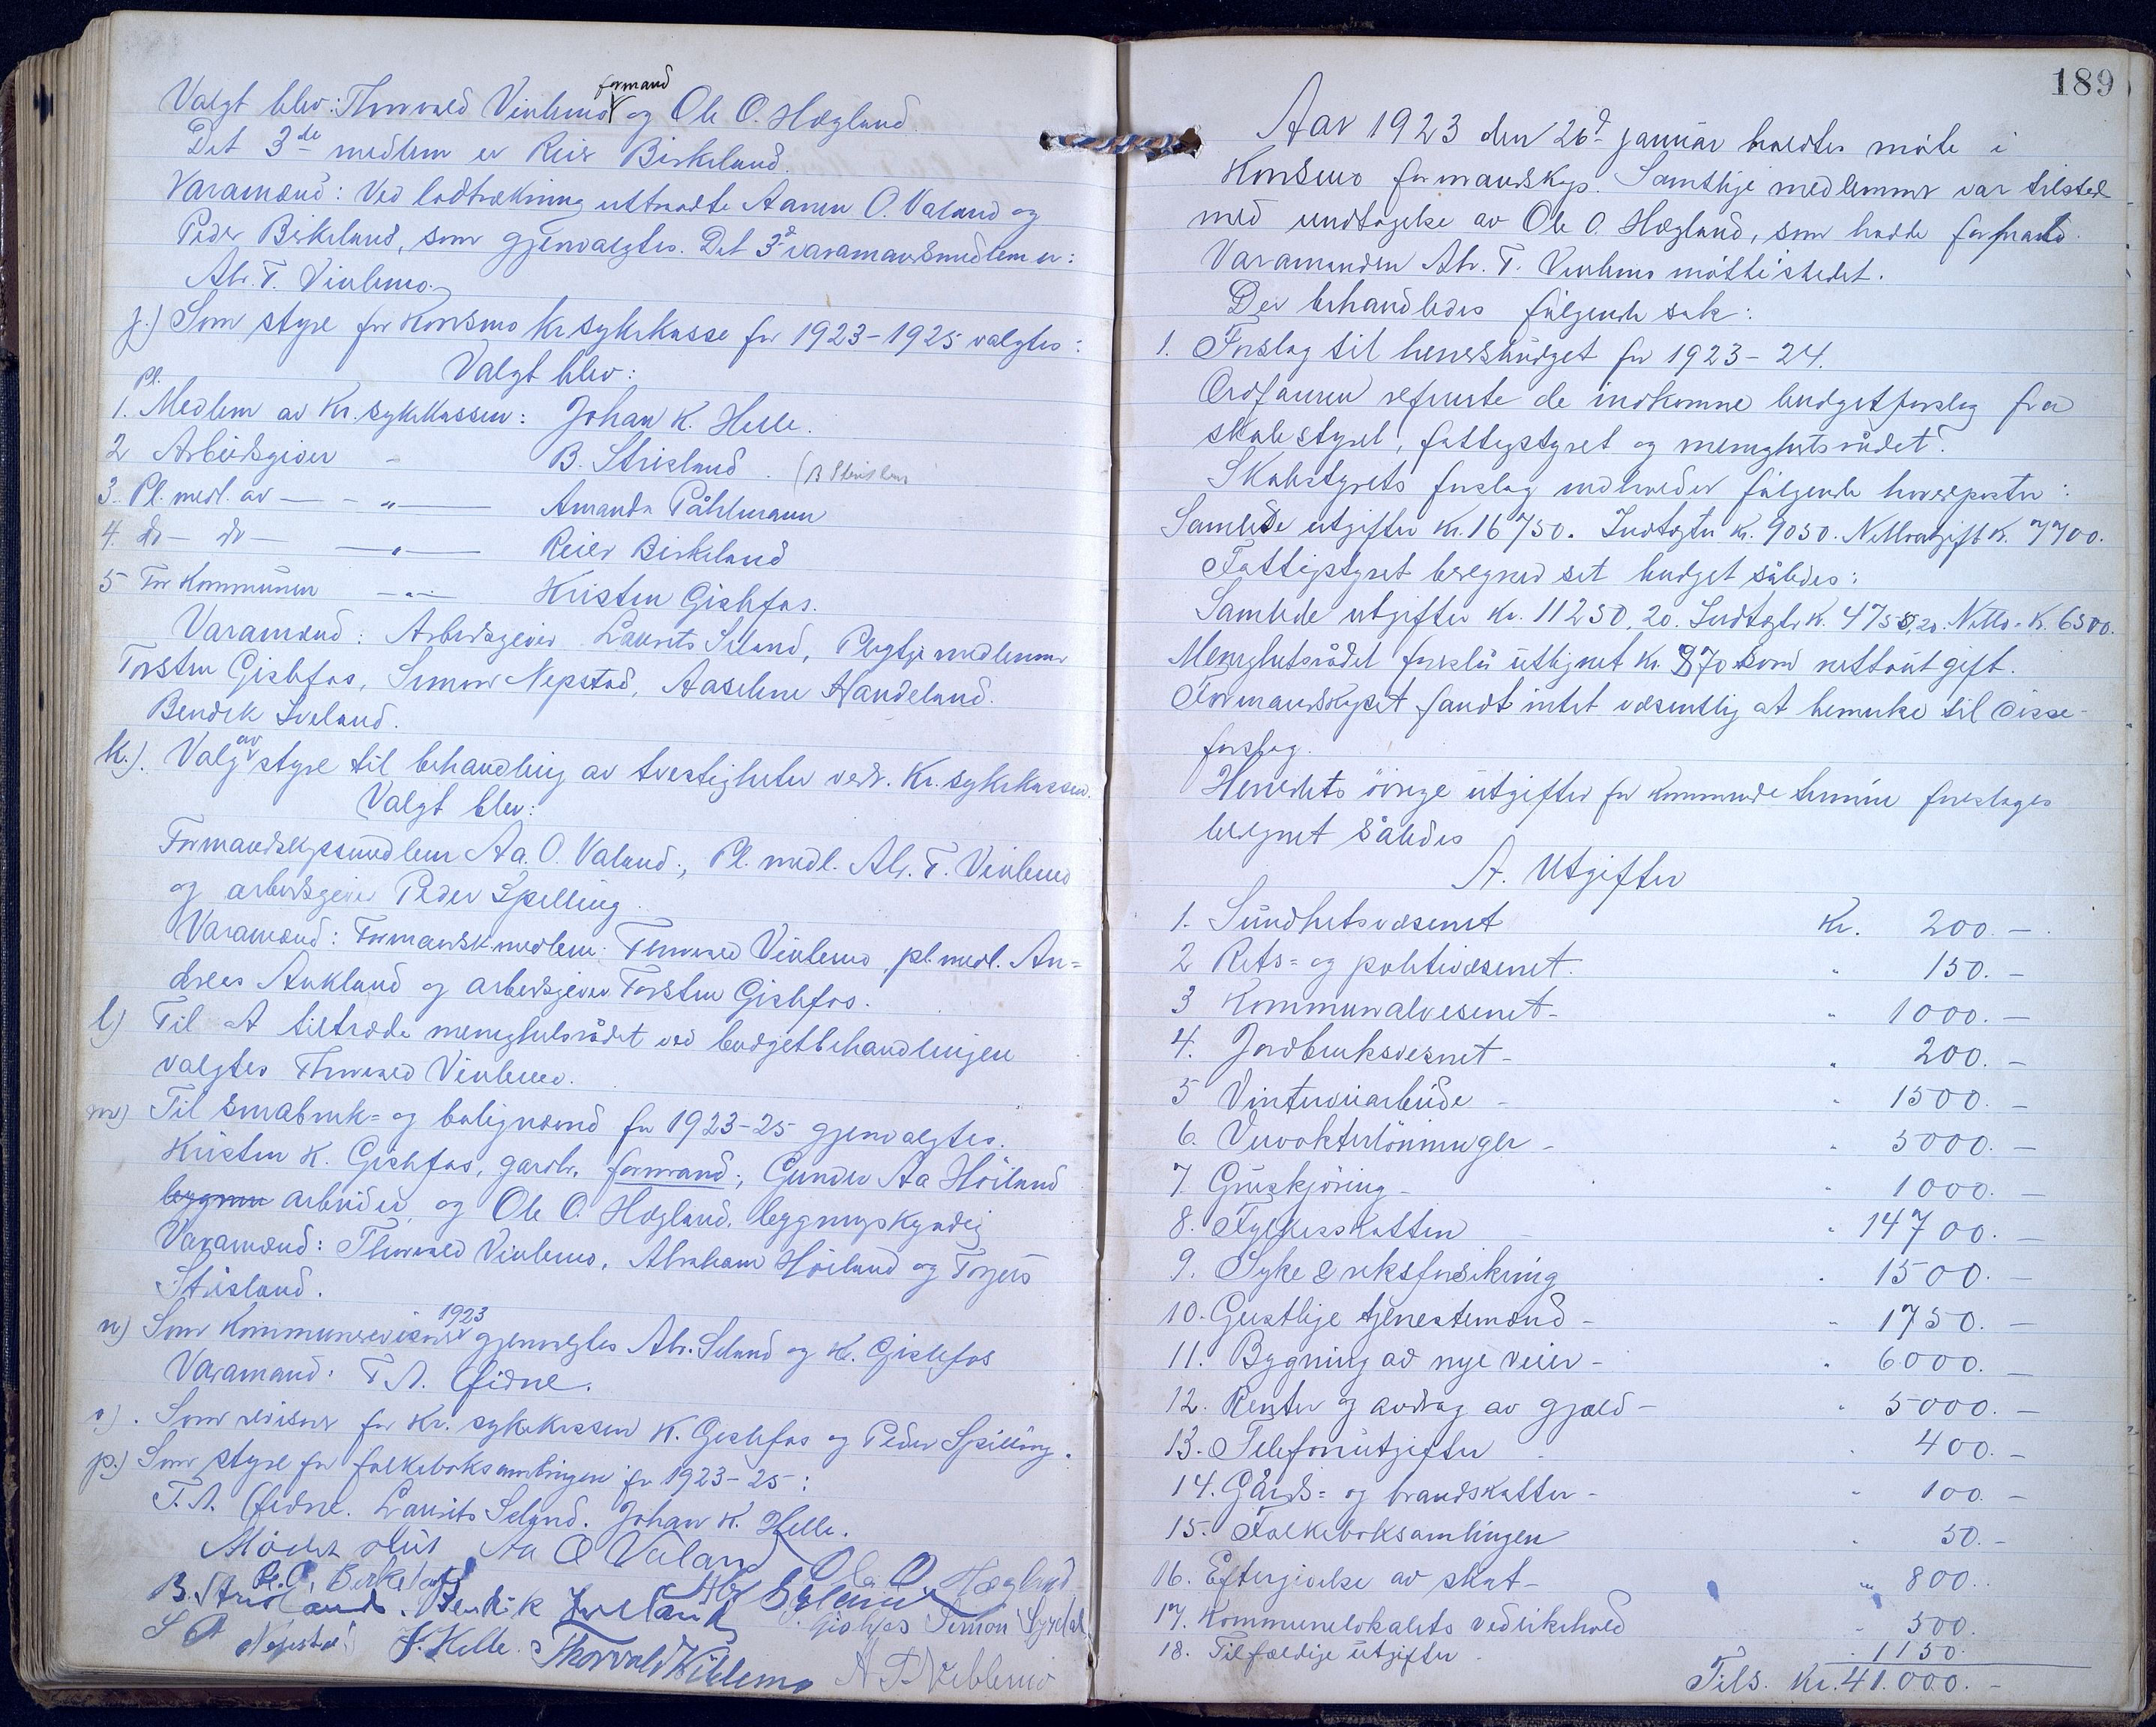 Valgt blev: Thorvald Viblemo formand og Ole O. Hægland.
Det 3de medlem er Reier Birkeland.
Varamænd: Ved lodtrækning uttraadte Aanen O. Valand og
Peder Birkeland, som gjenvalgtes. Det 3d varamandsmedlem er:
Abr. T. Viblemo.
j.) Som styre for Konsmo Kr.sykekasse for 1923-1925 valgtes:
Valgt blev:
1. Pl. Medlem av Kr. sykekassen: Johan K. Helle.
2 Arbeidsgiver - B. Strisland. (B Strisland
3. Pl. medl. av — - „ — Amanda Påhlmann
4. do — do — — „ — Reier Birkeland
5 For Kommunen - „ - Kristen Gislefos.
Varamænd: Arbeidsgiver Laurits Seland, Pligtige medlemmer
Torsten Gislefos, Simon Nepstad, Aaseline Handeland.
Bendik Sveland.
k.). Valg av styre til behandling av tvestigheter vedr. Kr. sykekassen.
Valgt blev:
Formandskapsmedlem Aa. O. Valand, Pl. medl. Abr. T. Viblemo
og arbeidsgiver Peder Spilling.
Varamænd: Formandsk.medlem: Thorvald Viblemo, pl. medl. An=
dreas Aukland og arbeidsgiver Torsten Gislefos.
l) Til at tiltræde menighetsrådet ved budgetbehandlingen
valgtes Thorvald Viblemo.
m) Til småbruk= og bolignævnd for 1923-25 gjenvalgtes.
Kristen K. Gislefos, gardbr. formand; Gunder Aa Höiland
arbeider og Ole O. Hægland, bygningskyndig
Varamænd: Thorvald Viblemo, Abraham Höiland og Torjus
Strisland.
n) Som Kommunerevisorer 1923 gjenvalgtes Abr. Seland og K. Gislefos
Varamand: T. A. Eidne.
o). Som revisorer for Kr. sykekassen K. Gislefos og Peder Spilling.
p.) Som styre for folkeboksamlingen for 1923-25:
T. A. Eidne. Laurits Seland. Johan K. Helle.
Mödet slut Aa O Valand Ole O Hægland
B. Strisland. Re. O. Birkeland Bendik Sveland Gislefos Simon
S A Nepstad J. Helle. Thorvald Viblemo A T Viblemo
189
Aar 1923 den 26d januar holdtes møte i
Konsmo formandskap. Samtlige medlemmer var tilstede
med undtagelse av Ole O. Hægland, som hadde forfald.
Varamanden Abr. T. Viblemo møtte istedet.
Der behandledes følgende sak:
1. Forslag til herredsbudget for 1923-24.
Ordføreren refererte de indkomne budgetforslag fra
skolestyret, fattigstyret og menighetsrådet.
Skolestyrets forslag indholder følgende hovedposter:
Samlede utgifter Kr. 16750. Indtægter Kr. 9050. Nettoutgift Kr. 7700.
Fattigstyret beregned set budget således:
Samlede utgifter Kr. 11250,20. Indtægter K. 4750,20. Netto- K. 6500.
Menighetsrådet foreslå utlignet Kr. 870 som nettoutgift.
Formandskapet fandt intet væsentlig at bemerke til disse
forslag.
Herredets övrige utgifter for kommende termin foreslåes
beregnet således
A. Utgifter
1. Sundhetsvæsenet Kr. 200. -
2 Rets= og politivæsenet. „ 150. -
3 Kommunalvesenet- „ 1000. -
4. Jordbruksvesnet- „ 200. -
5 Vinterveiarbeide - „ 1500. -
6. Veivokterlönninger - „ 5000. -
7. Gruskjöring- „ 1000. -
8. Fylkesskatten „ 14700. -
9. Syke & reksforsikring „ 1500. -
10. Geistlige tjenestemænd - „ 1750. -
11. Bygning av nye veier - „ 6000. -
12. Renter og avdrag av gjæld - „ 5000. -
13. Telefonutgifter „ 400. -
14. Gårds= og brandskatter - „ 100. -
15. Folkeboksamlingen „ 50. -
16. Eftergivelse av skat - „ 800. -
17. Kommunelokalets vedlikehold „ 500.
18. Tilfældige utgifter. „ 1150.
Tils. Kr. 41.000. -